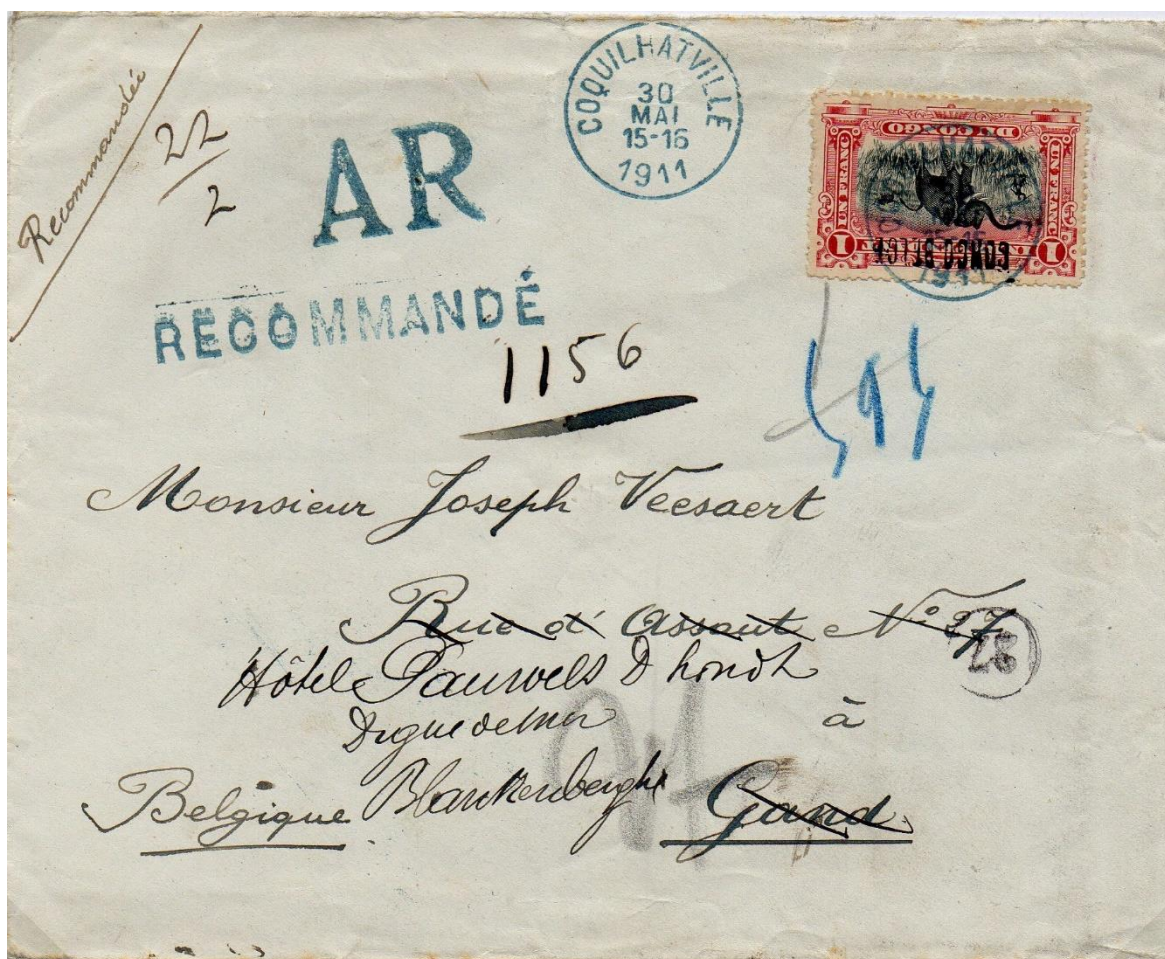 Recommandée
22
2
AR
RECOMMANDÉ
COQUILHATVILLE
30
MAI
15-16
1911
DU CONGO
UN FRANC
UN FRANC
1
1
CONGO BELGE
1156
Monsieur Joseph Veesaert
Rue d'Assaut N° 27
28
Hôtel Pauwels D'hondt
Digue de mer
à
Belgique Blankenberghe Gand